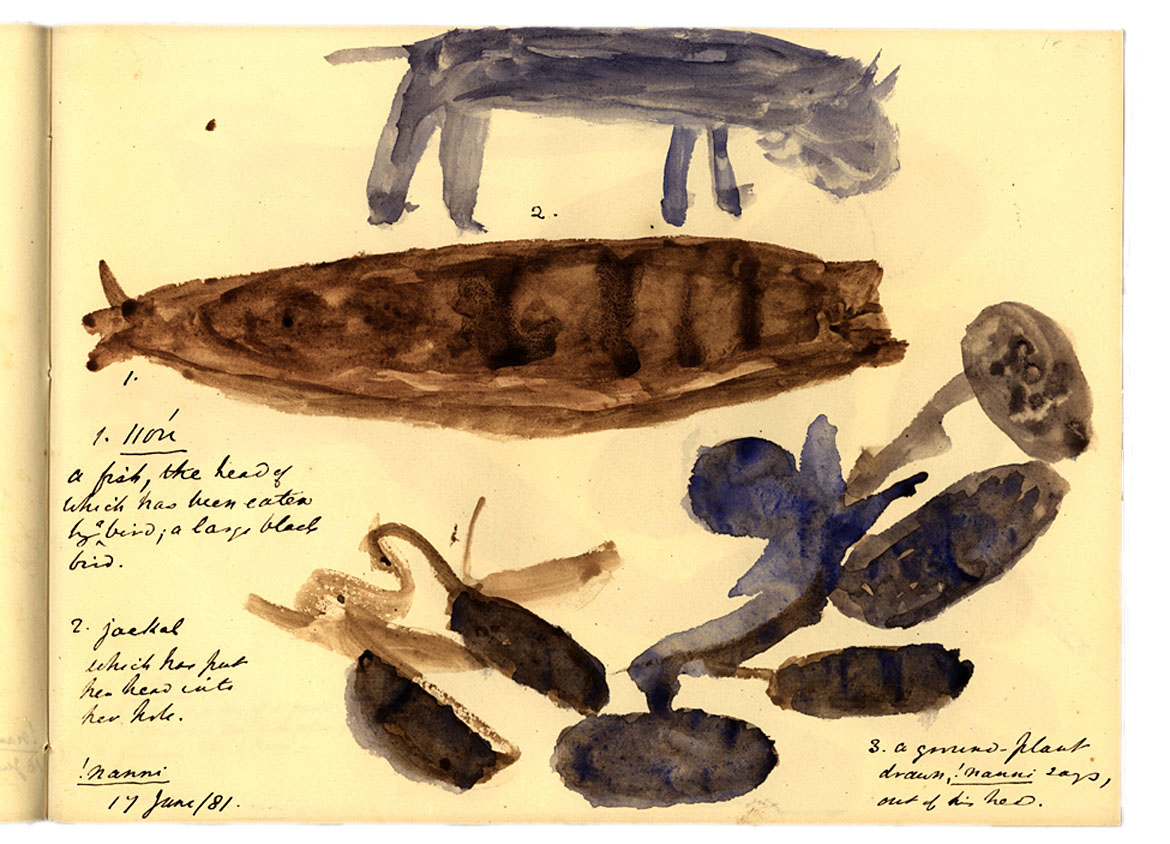 2.
1.
1. !!óǔ
a fish, the head of
which has been eaten
by a bird; a large black
bird.
2. jackal
which has put
her head into
her hole.
!nanni
17 June/81.
3. a ground-plant
drawn, !nanni says,
out of his head.